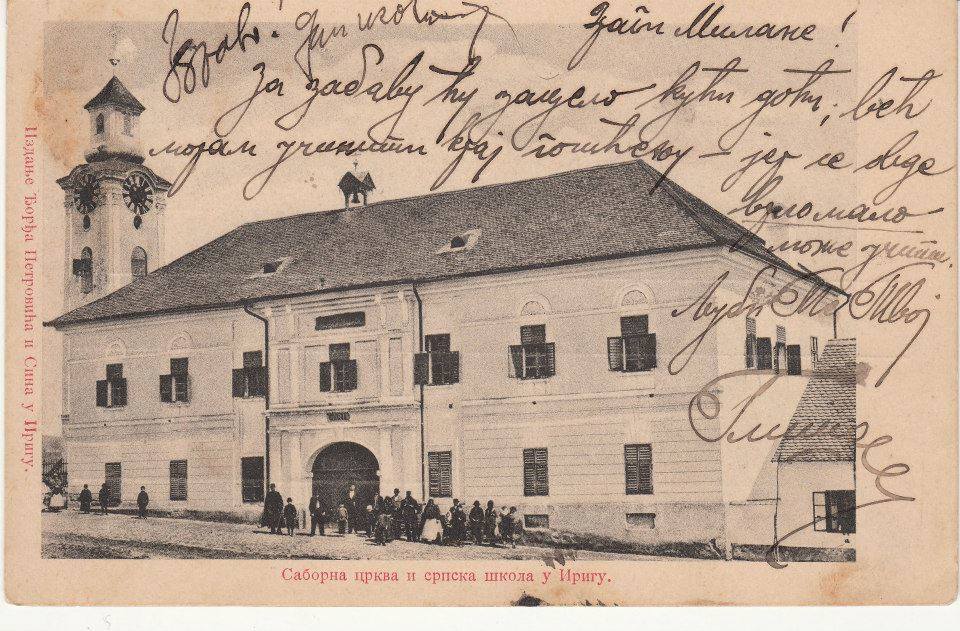 Здраво!
Зап Милане!
За забаву ћу зацело кући доћи, већ
морам учинити крај гошћењу – јер се овде
врло мало
може учити.
Љуби Те Твој
Издање Ђорђа Петровића и Сина у Иригу.
Саборна црква и српска школа у Иригу.